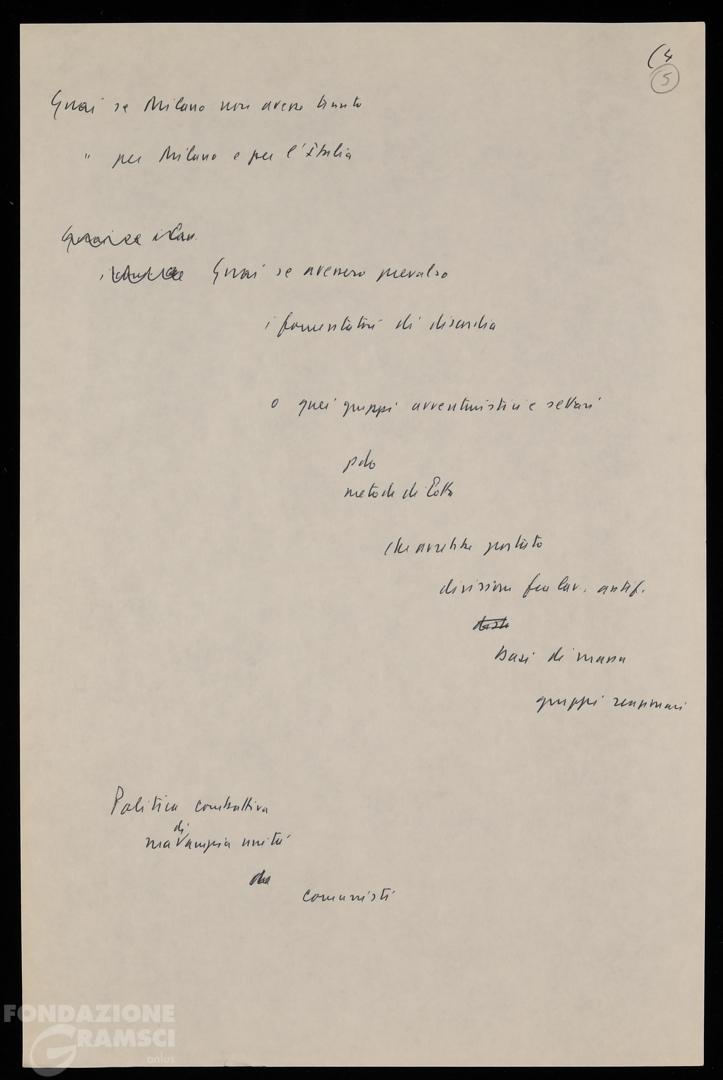 (4
5
Guai se Milano non avesse tenuto
" per Milano e per l'Italia
Guai se
Guai se avessero prevalso
i fomentatori di discordia
o quei gruppi avventuristici e settari
metodi di lotta
che avrebbe portato
divisione fra lav. antif.
basi di massa
gruppi reazionari
Politica combattiva
ma di ampia unità
dei
comunisti
FONDAZIONE
GRAMSCI
onlus